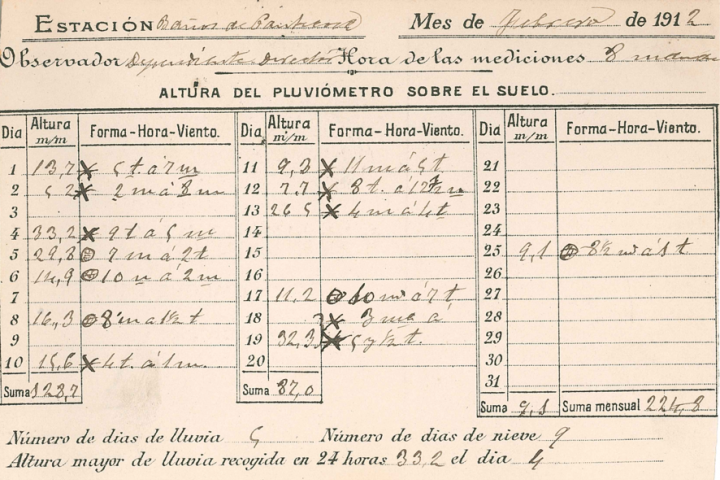 Estación Baños de Panticosa Mes de Febrero de 1912
Observador Dependiente Director Hora de las mediciones 8 mañana
ALTURA DEL PLUVIÓMETRO SOBRE EL SUELO.
Dia Altura m/m Forma-Hora-Viento. Dia Altura m/m Forma-Hora-Viento. Dia Altura m/m Forma-Hora-Viento.
1 13,7 5 t. á 7 m 11 9,3 11 m á 5 t 21
2 5 2 2 m á 8 m 12 7.7 8 t. á 22
3 13 26 5 4 m á 4 t 23
4 33,2 9 t á 5 m 14 24
5 22,8 7 m á 2 t 15 25 9,1 8½ m á 1 t
6 14,9 10 m á 2 m 16 26
7 17 11,2 10 m á 7 t 27
8 16,3 8 m a 18 3 m á 28
9 19 32,3 5 y ½ t. 29
10 15,6 4 t. á 1 m. 20 30
31
Suma 128,7 Suma 87,0 Suma 9,1 Suma mensual 224,8
Número de dias de lluvia 5 Número de dias de nieve 9
Altura mayor de lluvia recogida en 24 horas 33,2 el dia 4